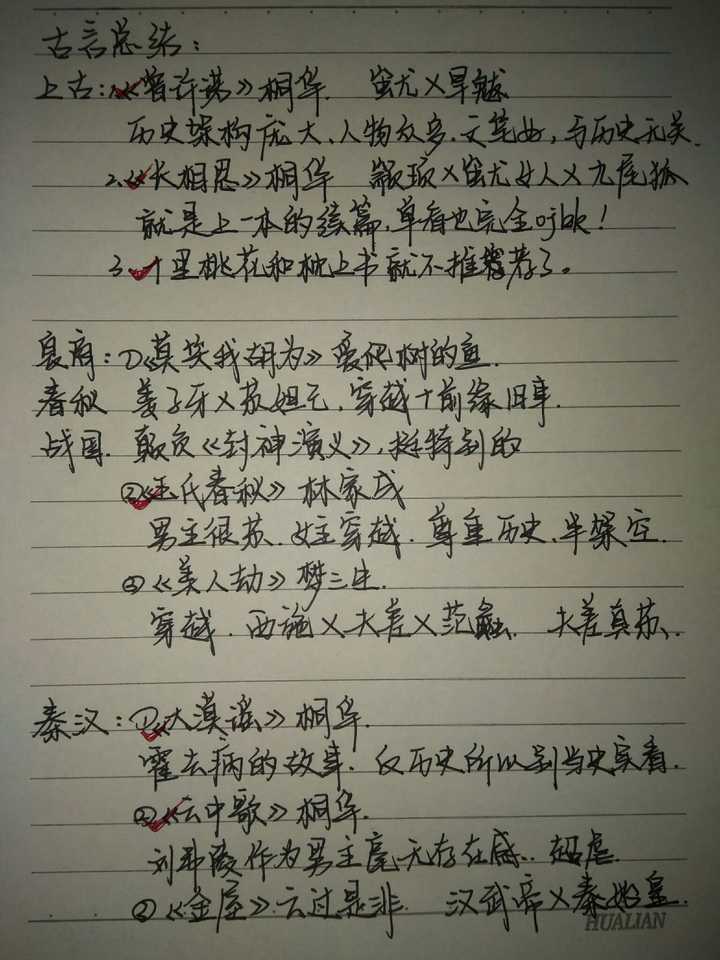 古言总结：
上古：1.《曾许诺》桐华. 蚩尤×旱魃
历史架构庞大、人物众多、文笔好，与历史无关.
2.《长相思》桐华 颛顼×蚩尤女人×九尾狐
就是上一本的续篇，单看也完全ojbk！
3.十里桃花和枕上书就不推荐了。
衰商：①《莫笑我胡为》爱爬树的鱼.
春秋 姜子牙×苏妲己，穿越+前缘旧事.
战国. 颠负《封神演义》，挺特别的
②《玉氏春秋》林家成
男主很苏.女主穿越.尊重历史.半架空.
③《美人劫》梦三生.
穿越.西施×夫差×范蠡. 夫差真苏.
秦汉：①《大漠谣》桐华.
霍去病的故事.仅历史所以别当史实看.
②《云中歌》桐华.
刘弗陵作为男主毫无存在感.超虐.
③《金屋》云过是非 汉武帝×秦始皇.
HUALIAN